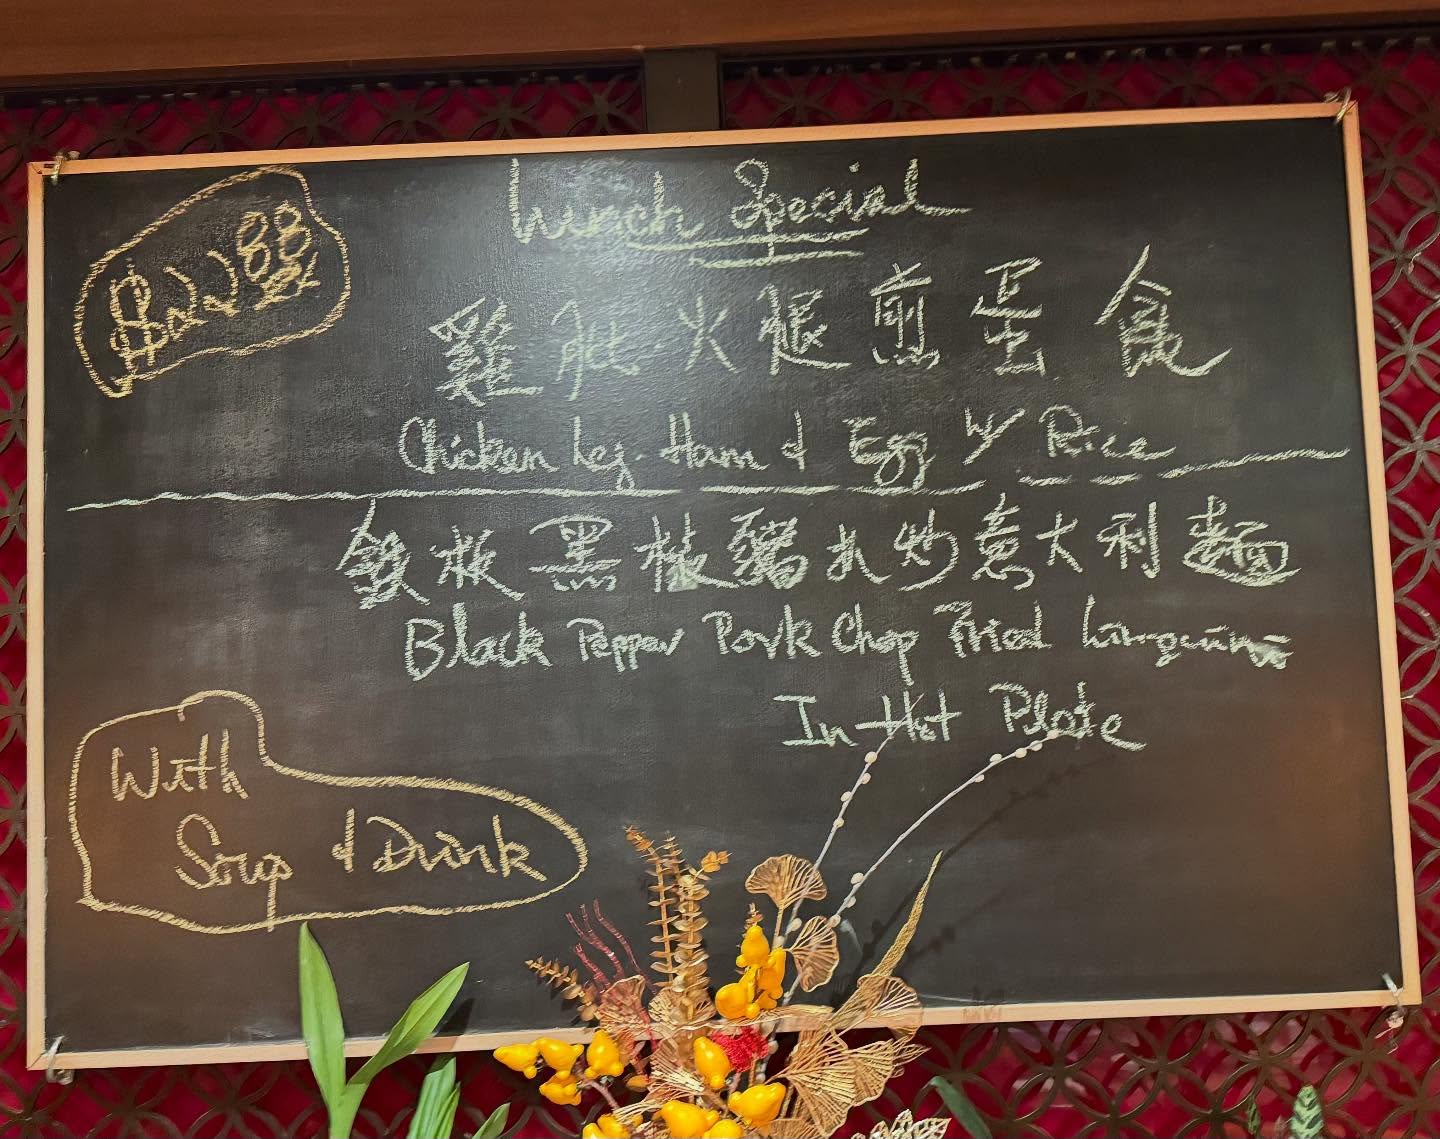 Lunch Special
$22.88
雞脾火腿煎蛋飯
Chicken Leg. Ham & Egg w/ Rice
鐵板黑椒豬扒炒意大利麵
Black Pepper Pork Chop Fried
In Hot Plate
With
Soup & Drink